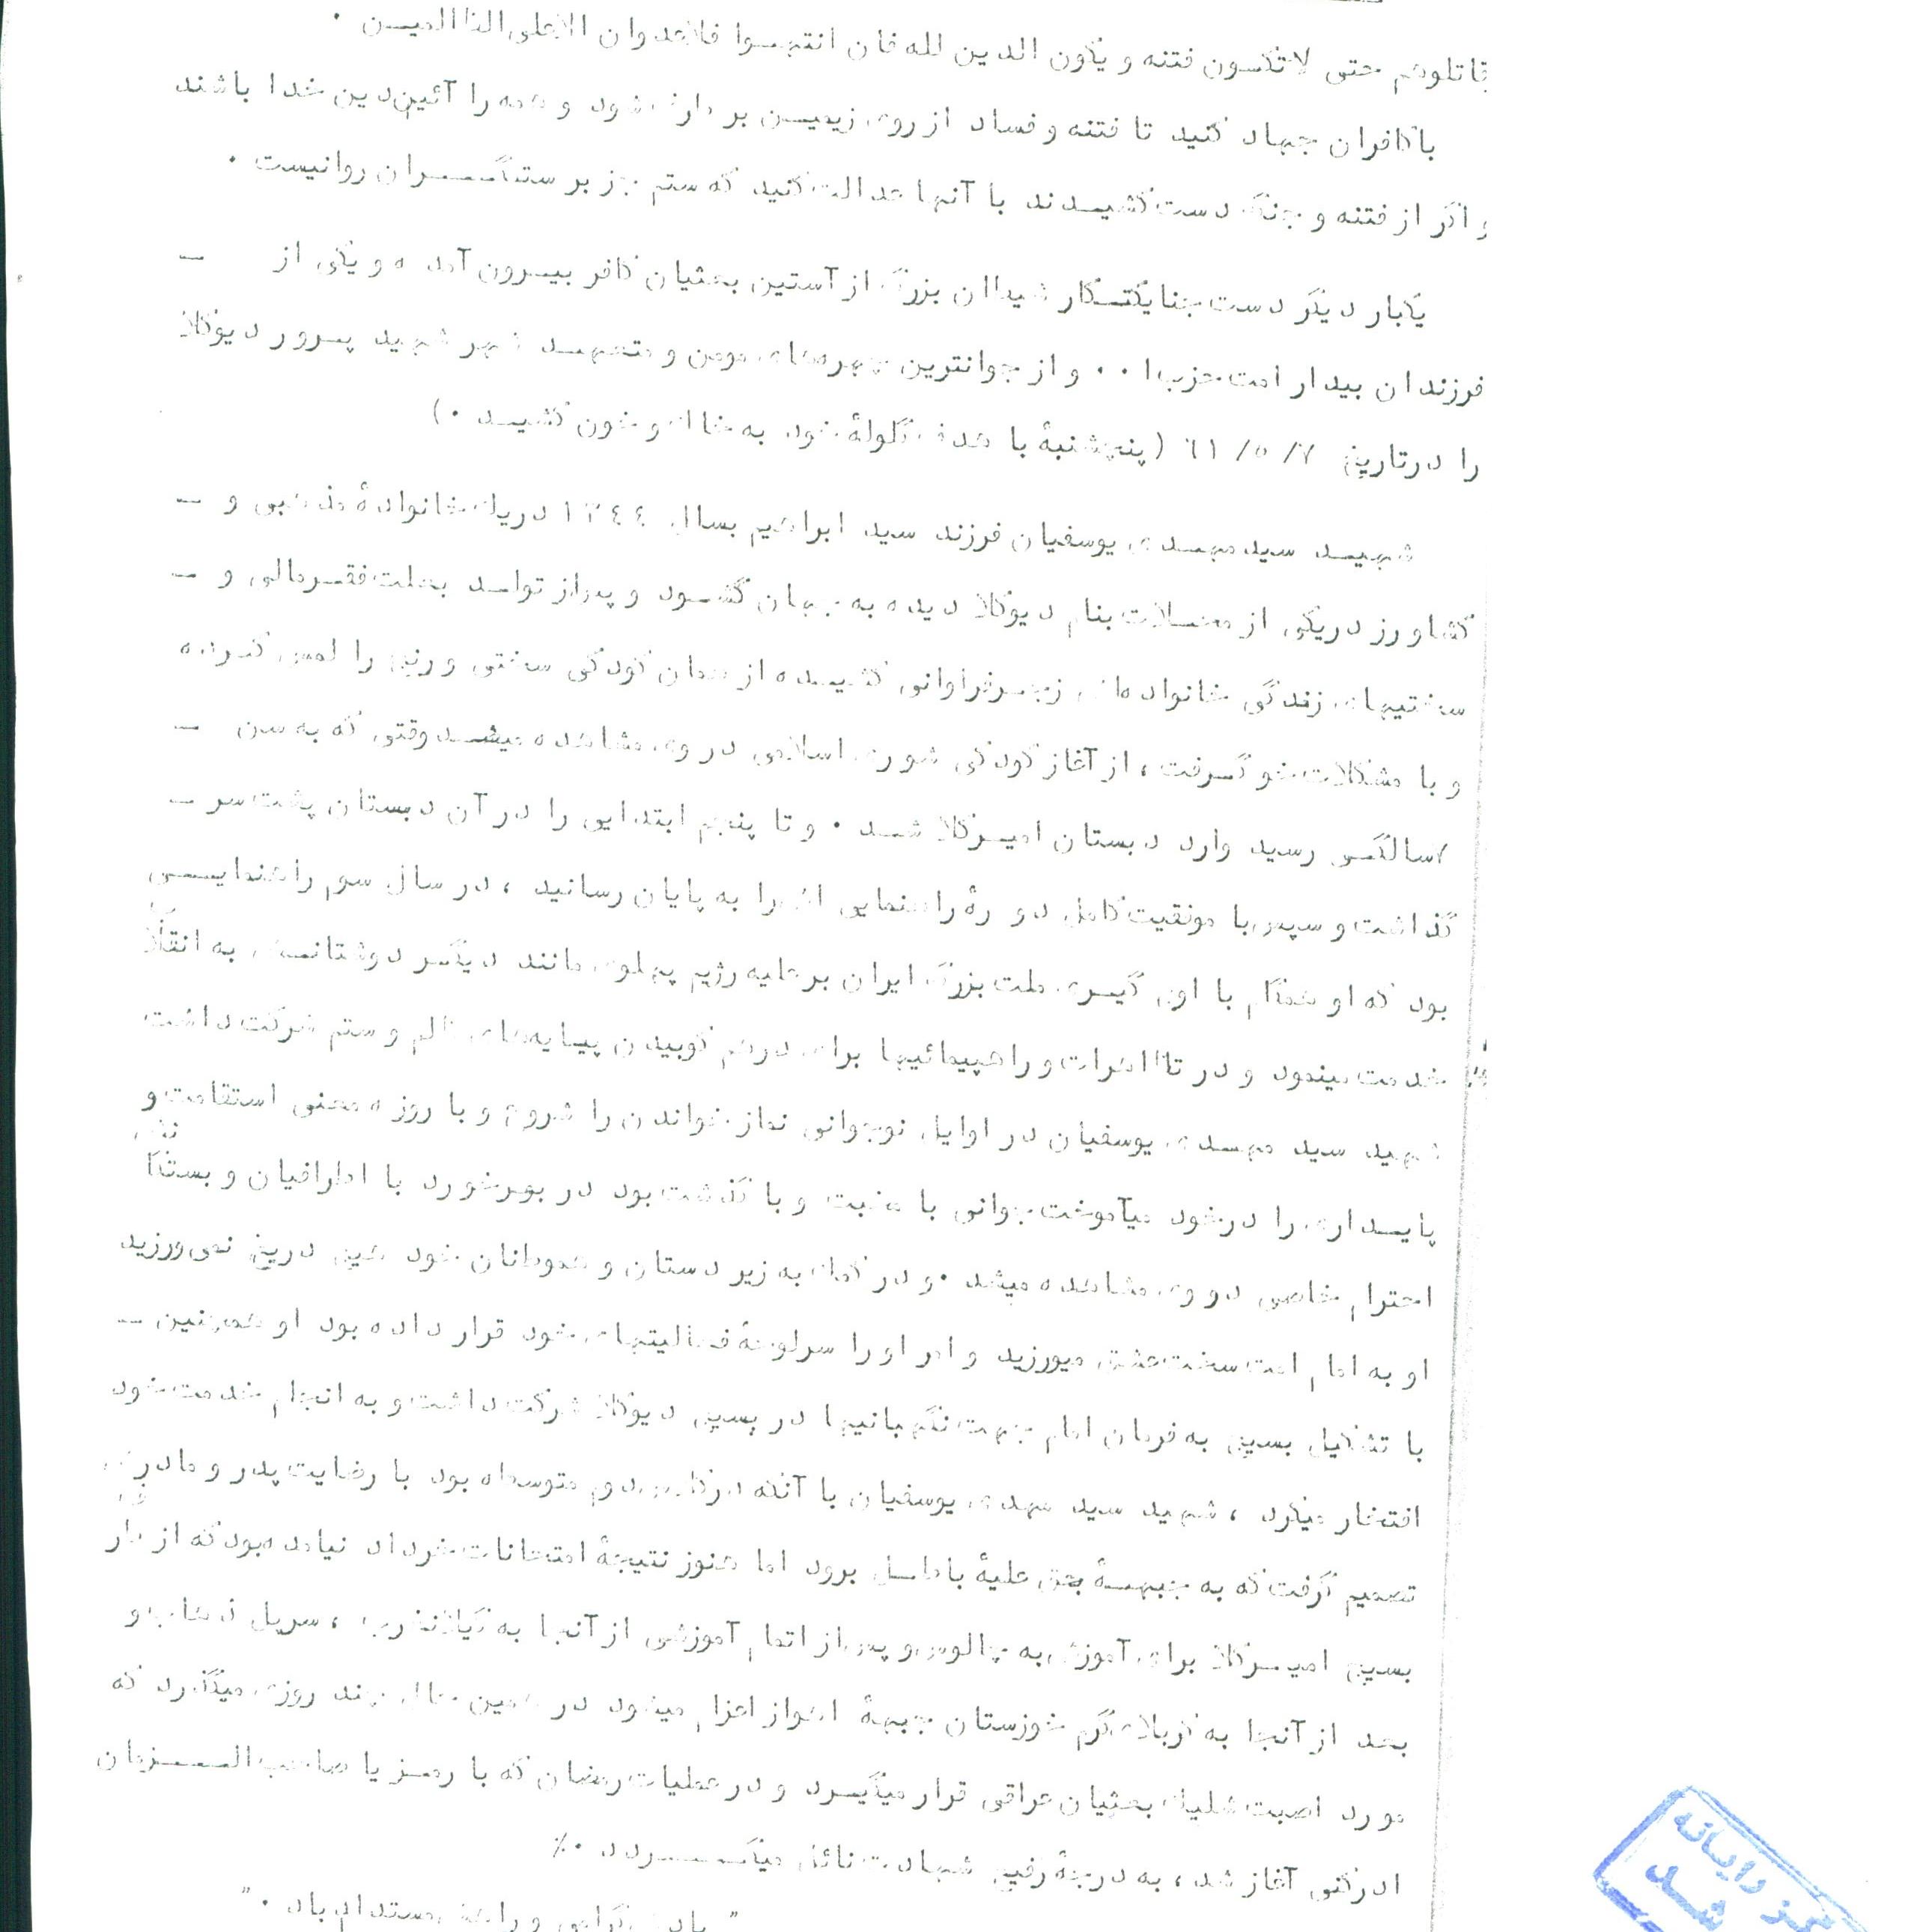 قاتلوهم حتی لاتکسون فتنه و یکون الدین لله فان انتهسوا فلاعدوان الاعلی الظالمیسن .
باکافران جهاد کنید تا فتنه و فساد از روی زیمیسن بر دارد شود و همه را آئین دین خدا باشند
و اگر از فتنه و جنگ دست کشیسدند با آنها عدالت کنید که ستم جز بر ستمگسسران روانیست .
یکبار دیگر دست جنایتسکار شیطان بزرگ از آستین بعثیان کافر بیسرون آمده و یکی از –
فرزندان بیدار امت حزب ا . . و از جوانترین چهره‌های مومن و متعهسد شهر شهید پسرور دیوکلا
را درتاریخ ۷/ ۵/ ٦۱ (پنجشنبهٔ با هدف گلولهٔ خود به خاک و خون کشیسد .)
شهیسد سید مهسدی یوسفیان فرزند سید ابراهیم بسال ۱۳٤٤ دریک خانوادهٔ مذهبی و –
کشاورز دریکی از محسلات بنام دیوکلا دیده به جهان گشسود و پس از تولسد بعلت فقسرمالی و –
سختیهای زندگی خانواده‌اش زجسرفراوانی کشیسده از همان کودکی سختی و رنج را لمس کسرده
و با مشکلات خو گسرفت ، از آغاز کودکی شور اسلامی در وی مشاهده میشسد وقتی که به سن –
۷سالگسی رسید وارد دبستان امیسرکلا شسد . و تا پنجم ابتدایی را در آن دبستان پشت سر –
گذاشت و سپس با موفقیت کامل دورهٔ راهنمایی اش را به پایان رسانید ، در سال سوم راهنماییسی
بود که او همگام با اوج گیسری ملت بزرگ ایران بر علیه رژیم پهلوی مانند دیگسر دوستانش به انقلا
خدمت مینمود و در تظاهرات و راهپیمائیها برای درهم کوبیدن پیایه‌های ظلم و ستم شرکت داشت
شهید سید مهسدی یوسفیان در اوایل نوجوانی نماز خواندن را شروع و با روزه معنی استقامت و
پایسداری را درخود میآموخت جوانی با محبت و با گذشت بود در بسرخورد با اطرافیان و بستگا
احترام خاصی در وی مشاهده میشد . و در کمک به زیر دستان و همنوعانان خود هیچ دریغ نمی‌ورزید
او به امام امت سخت عشق میورزید و امر او را سرلوحهٔ فعالیتهای خود قرار داده بود او همچنین –
با تشکیل بسیج به فرمان امام جهت نگهبانیها در بسیج دیوکلا شرکت داشت و به انجام خدمت خود
افتخار میکرد ، شهید سید مهدی یوسفیان با آنکه درکلاس دوم متوسطه بود با رضایت پدر و مادرش
تصمیم گرفت که به جبهسهٔ حق علیهٔ باطسل برود اما هنوز نتیجهٔ امتحانات خرداد نیامده بود که از
بسیج امیسرکلا برای آموزش به چالوس و پس از اتمام آموزش از آنجا به گیلانغرب ، سرپل ذهاب و
بعد از آنجا به کربلای گرم خوزستان جبههٔ اهواز اعزام میشود در همین حال چند روزی میگذرد که
مورد اصبت شلیک بعثیان عراقی قرار میگیسرد و در عملیات رمضان که با رمسز یا صاحب السسزمان
ادرکنی آغاز شد ، به درجهٔ رفیع شهادت نائل میگسسردد .٪
" یادش گرامی و راهش مستدام باد . "
کز رایانه
شد